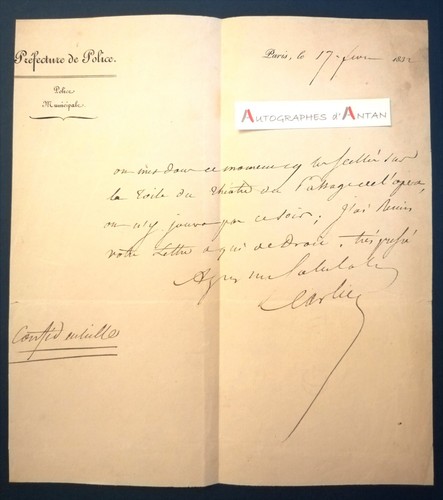 Préfecture de Police.
Paris, le 17 fevr 1832
Police
Municipale.
AUTOGRAPHES d'ANTAN
on met dans ce moment les scellés sur
la Toile du théatre du Passage de l'opera,
on n'y jouera pas ce soir; J'ai Remis
votre Lettre a qui de Droit. très pressé
Agréez mes Salutations
Carlier
Confidentielle